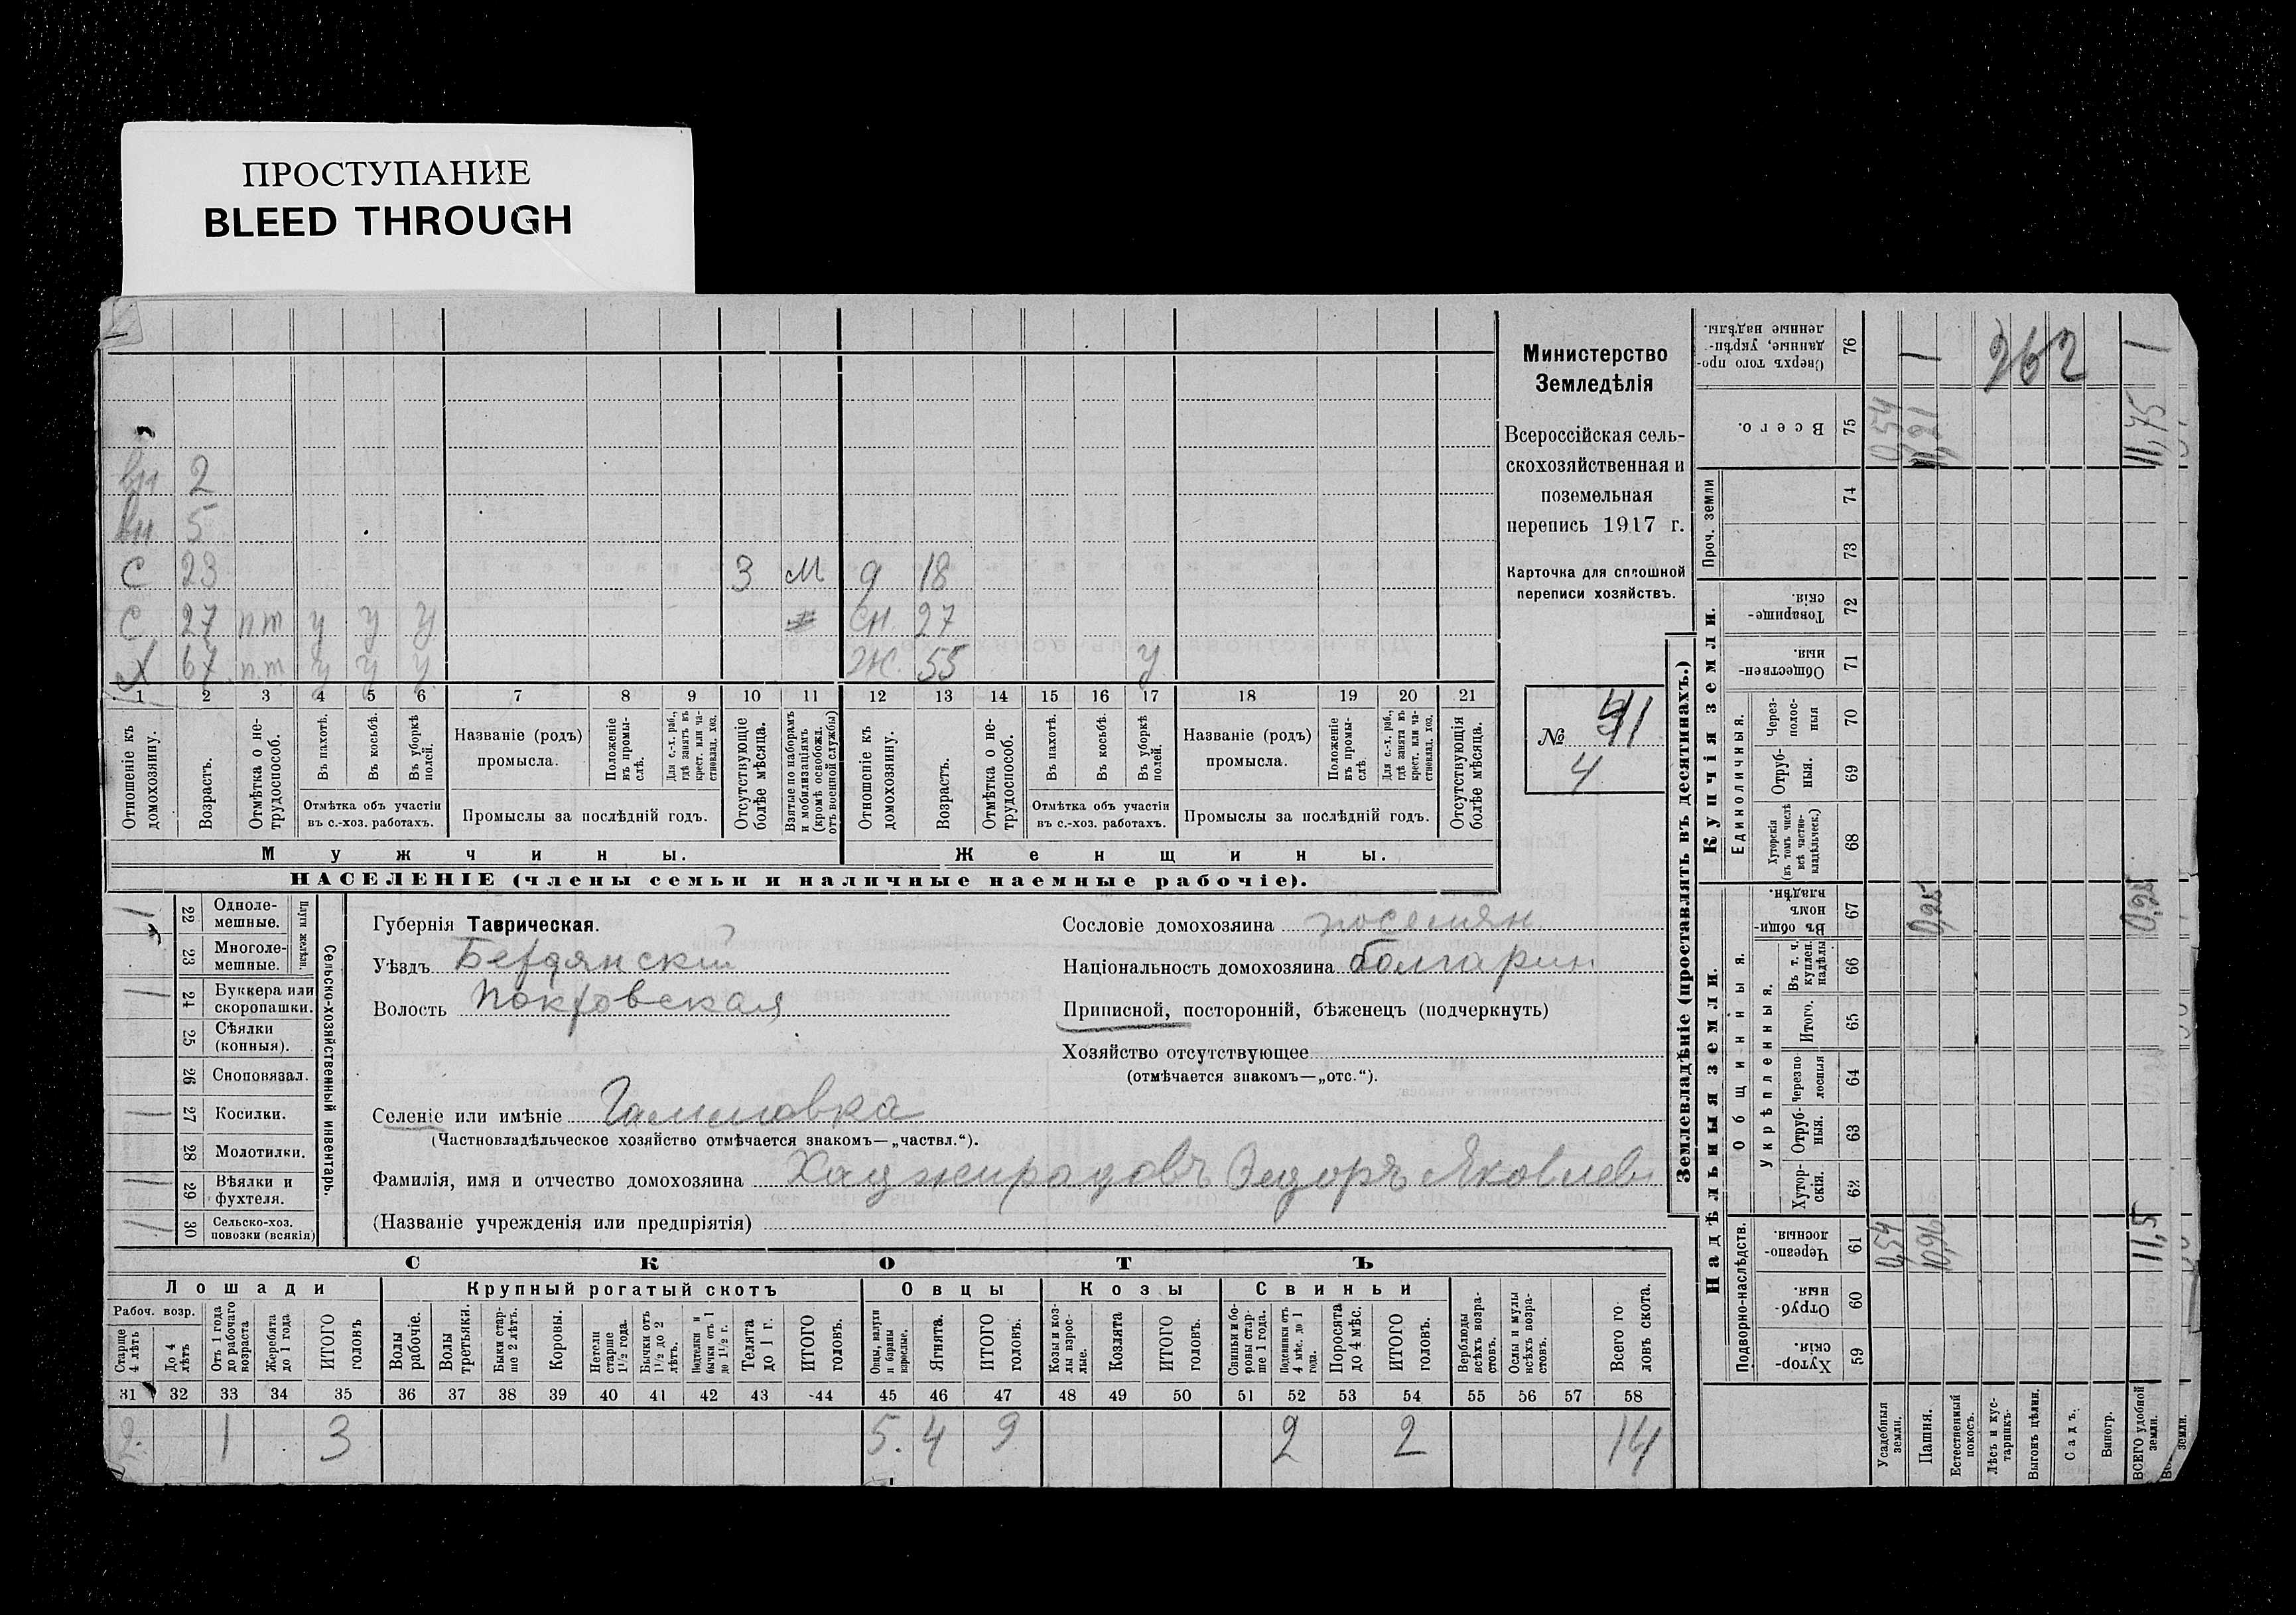 ПРОСТУПАНИЕ
BLEED THROUGH
вн 2
вн 5
С 23 3 М д 18
С 27 пт у у у сн. 27
Х 67 пт у у у Ж. 55 у
1 2 3 4 5 6 7 8 9 10 11 12 13 14 15 16 17 18 19 20 21
Отношеніе къ домохозяину.
Возрастъ.
Отмѣтка о нетрудоспособ.
Въ пахотѣ.
Въ косьбѣ.
Въ уборкѣ полей.
Отмѣтка объ участіи въ с.-хоз. работахъ.
Названіе (родъ) промысла.
Положеніе въ промыслѣ.
Для с.-х. раб., гдѣ занятъ въ крест. или частновлад. хоз.
Промыслы за послѣдній годъ.
Отсутствующіе болѣе мѣсяца.
Взятые по наборамъ и мобилизаціямъ (кромѣ освобожд. отъ военной службы)
Отношеніе къ домохозяину.
Возрастъ.
Отмѣтка о нетрудоспособ.
Въ пахотѣ.
Въ косьбѣ.
Въ уборкѣ полей.
Отмѣтка объ участіи въ с.-хоз. работахъ.
Названіе (родъ) промысла.
Положеніе въ промыслѣ.
Для с.-х. раб., гдѣ занята въ крест. или частновлад. хоз.
Промыслы за послѣдній годъ.
Отсутствующія болѣе мѣсяца.
Мужчины.
Женщины.
НАСЕЛЕНІЕ (члены семьи и наличные наемные рабочіе).
Министерство
Земледѣлія
Всероссійская сель-
скохозяйственная и
поземельная
перепись 1917 г.
Карточка для сплошной
переписи хозяйствъ.
№ 41
4
Сельско-хозяйственный инвентарь.
Плуги желѣзн.
22 Одноле-мешные. 1
23 Многоле-мешные.
24 Буккера или скоропашки. 1
25 Сѣялки (конныя).
26 Сноповязал.
27 Косилки. 1
28 Молотилки.
29 Вѣялки и фухтеля. 1
30 Сельско-хоз. повозки (всякія) 1
Губернія Таврическая.
Уѣздъ Бердянскій
Волость Покровская
Сословіе домохозяина поселян.
Національность домохозяина болгарин
Приписной, посторонній, бѣженецъ (подчеркнуть)
Хозяйство отсутствующее
(отмѣчается знакомъ—„отс.“).
Селеніе или имѣніе
(Частновладѣльческое хозяйство отмѣчается знакомъ—„частвл.“).
Фамилія, имя и отчество домохозяина Хаджирадовъ Ѳедоръ Яковлев
(Названіе учрежденія или предпріятія)
СКОТЪ
Лошади
Крупный рогатый скотъ
Овцы
Козы
Свиньи
Рабоч. возр.
Старше 4 лѣтъ
До 4 лѣтъ
Отъ 1 года до рабочаго возраста
Жеребята до 1 года
ИТОГО головъ
Волы рабочіе.
Волы третьяки.
Быки старше 2 лѣтъ.
Коровы.
Нетели старше 1½ года.
Бычки отъ 1½ до 2 лѣтъ.
бычки отъ 1 до 1½ г.
Телята до 1 г.
ИТОГО головъ.
Овцы, валухи и бараны взрослые.
Ягнята.
ИТОГО головъ.
Козы и козлы взрослые.
Козлята
ИТОГО головъ.
Свиньи и боровы старше 1 года.
Подсвинки отъ 4 мѣс. до 1 года.
Поросята до 4 мѣс.
ИТОГО головъ.
Верблюды всѣхъ возрастовъ.
Ослы и мулы всѣхъ возрастовъ.
Всего головъ скота.
31 32 33 34 35 36 37 38 39 40 41 42 43 44 45 46 47 48 49 50 51 52 53 54 55 56 57 58
2. 1 3 5. 4 9 2 2 14
Землевладѣніе (проставлять въ десятинахъ.)
Надѣльныя земли.
Купчія земли.
Проч. земли
Подворно-наслѣдств.
Общинныя.
Укрѣпленныя.
Единоличныя.
Хуторскія. 59
Отрубныя. 60
Черезполосныя. 61
Хуторскія. 62
Отрубныя. 63
Черезполосныя 64
Итого. 65
Въ т. ч. куплен. надѣлы 66
Въ общинномъ владѣн. 67
Хуторскія (въ томъ числѣ всѣ частновладѣльческ.) 68
Отрубныя. 69
Черезполосныя 70
Общественныя. 71
Товарищескія. 72
73
74
Всего. 75
Сверхъ того проданные, укрѣпленные надѣлы. 76
Усадебныя земли. 0,54 0,54
Пашня. 10,96 0,25 11,21 1
Естественный покосъ.
Лѣсъ и кустарникъ.
Выгонъ цѣлин.
Садъ.
Виногр.
ВСЕГО удобной земли. 11,5 0,25 11,75 1
земли.
262